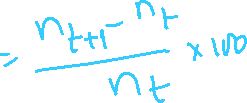 = \frac{n_{t+1} - n_t}{n_t} \times 100